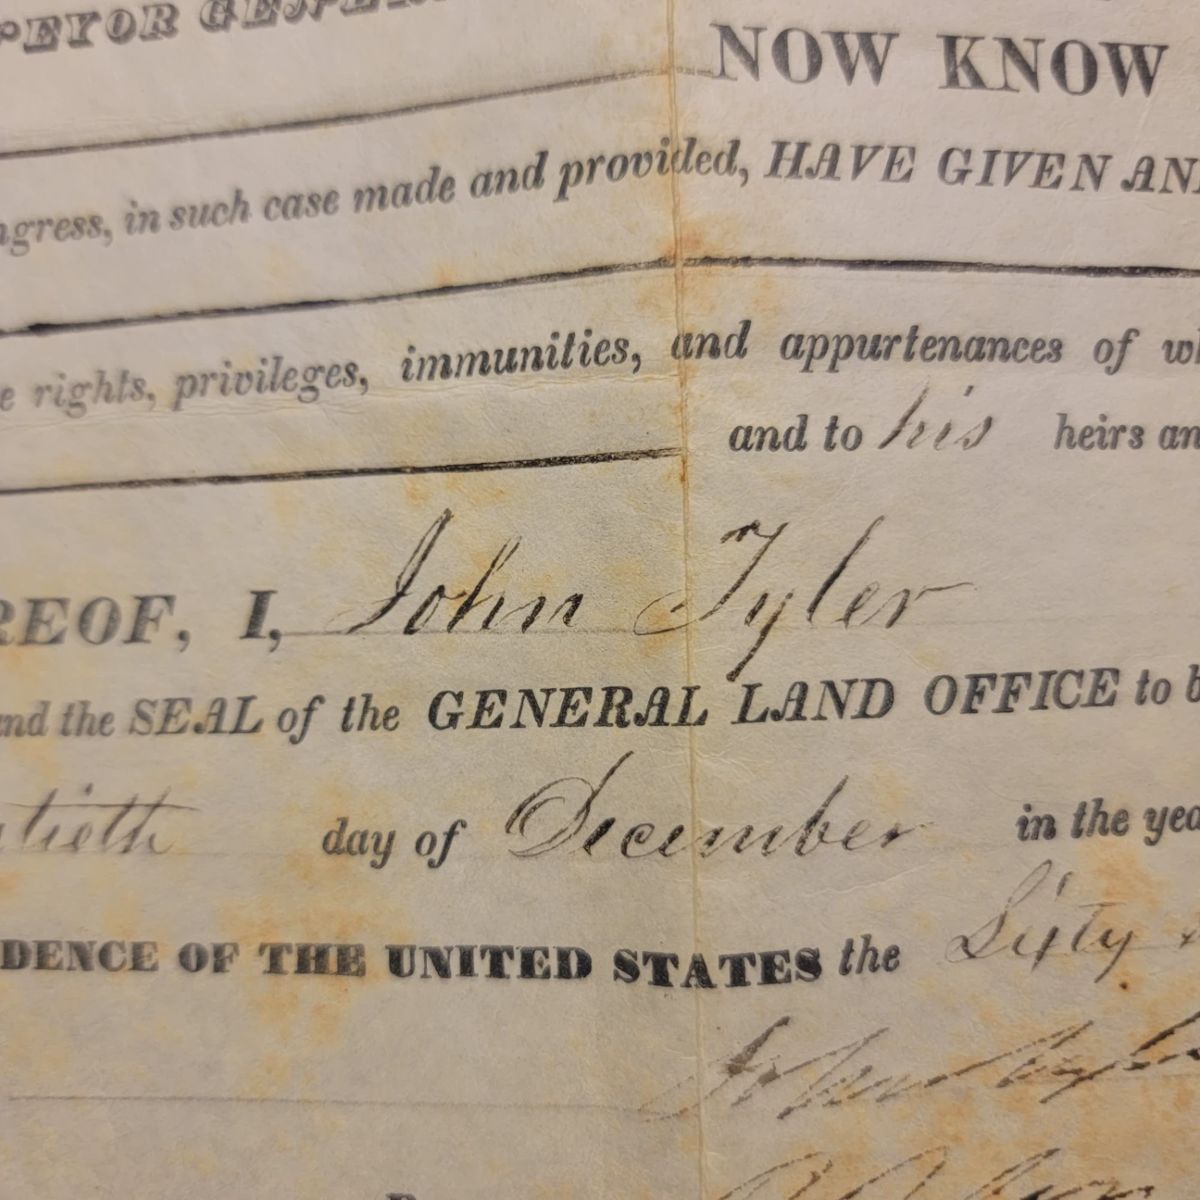 RVEYOR GENERA
NOW KNOW
ngress, in such case made and provided, HAVE GIVEN AN
e rights, privileges, immunities, and appurtenances of wh
and to his heirs an
REOF, I, John Tyler
nd the SEAL of the GENERAL LAND OFFICE to b
tieth day of December in the yea
DENCE OF THE UNITED STATES the Sixty
John Tyler